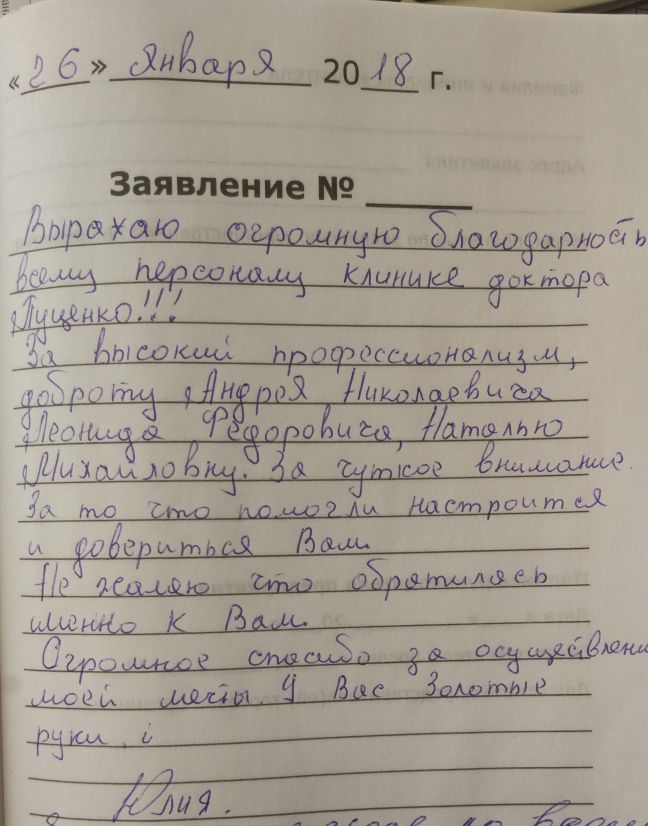 «26» Января 2018 г.
Заявление № ____
Выражаю огромную благодарность
всему персоналу клинике доктора
Луценко!!!
За высокий профессионализм,
доброту Андрея Николаевича
Леонида Фёдоровича, Наталью
Михайловну. За чуткое внимание.
За то что помогли настроится
и довериться Вам.
Не жалею что обратилась
именно к Вам.
Огромное спасибо за осуществлени
моей мечты. У Вас Золотые
руки. i
Юлия.